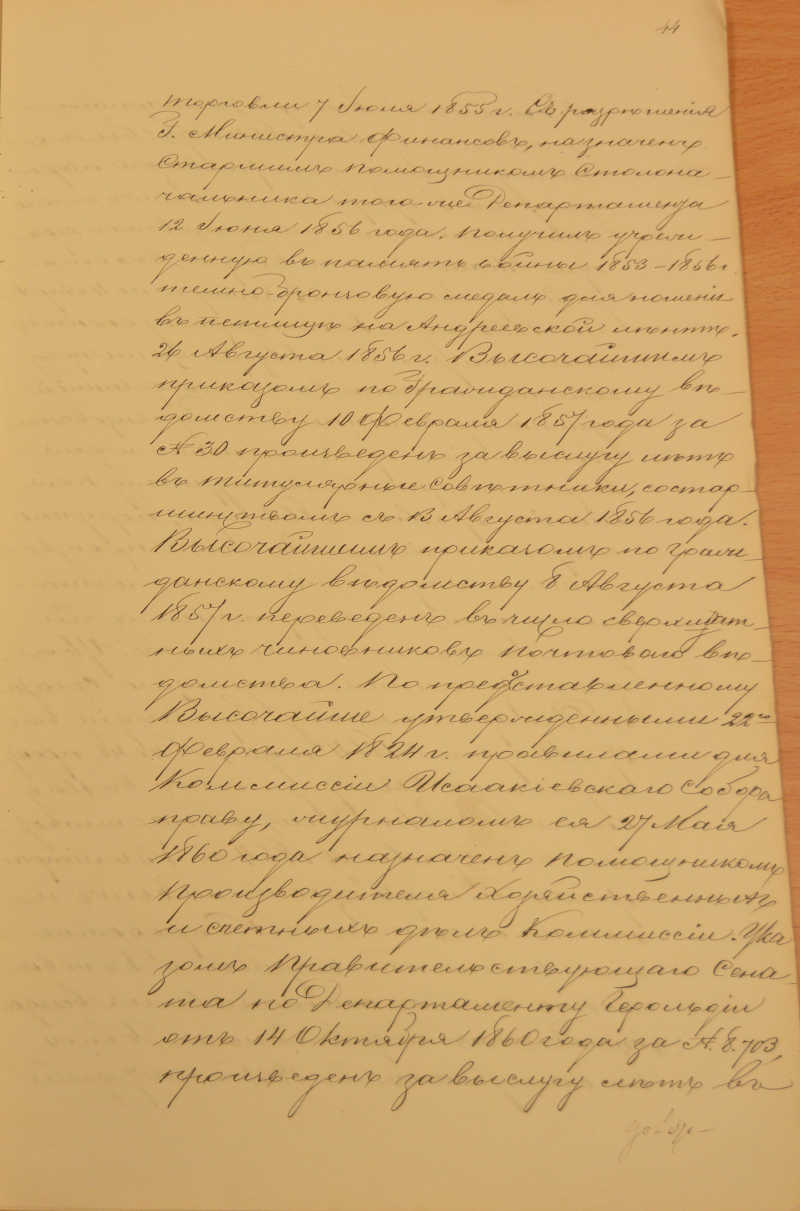 44
торговли 7 Июля 1855 г. Съ разрѣшенія
Г. Министра Финансовъ, назначенъ
Старшимъ Помощникомъ Столона-
чальника того же Департамента
12 Іюня 1856 года. Получилъ учреж-
денную въ память войны 1853-1856 г.
темно-бронзовую медаль для ношенія
въ петлицѣ на Андреевской лентѣ.
26 Августа 1856 г. Высочайшимъ
приказомъ по Гражданскому вѣ-
домству 10 Февраля 1857 года за
№ 30 произведенъ за выслугу лѣтъ
въ Титулярные Совѣтники, со стар-
шинствомъ съ 13 Августа 1856 года.
Высочайшимъ приказомъ по Граж-
данскому вѣдомству 8 Августа
1857 г. переведенъ въ число сверхштат-
ныхъ чиновниковъ Почтоваго вѣ-
домства. По предоставленному
Высочайше утвержденными 22го
Февраля 1824 г. правилами для
Коммиссіи Исаакіевскаго Собора
праву, журналомъ ея 27 Мая
1860 года назначенъ Помощникомъ
Производителя Хозяйственныхъ
и счетныхъ дѣлъ Коммиссіи. Ука-
зомъ Правительствующаго Сена-
та по Департаменту Герольдіи
отъ 14 Октября 1860 года за № 8.703,
произведенъ за выслугу лѣтъ въ